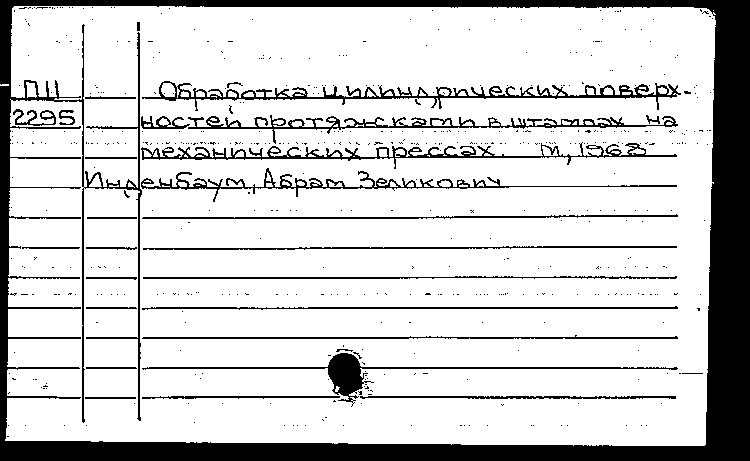 ПII Обработка цилиндрических поверх-
2295 ностей протяжками в штампах на
механических прессах. М., 1968
Инденбаум, Абрам Зеликович